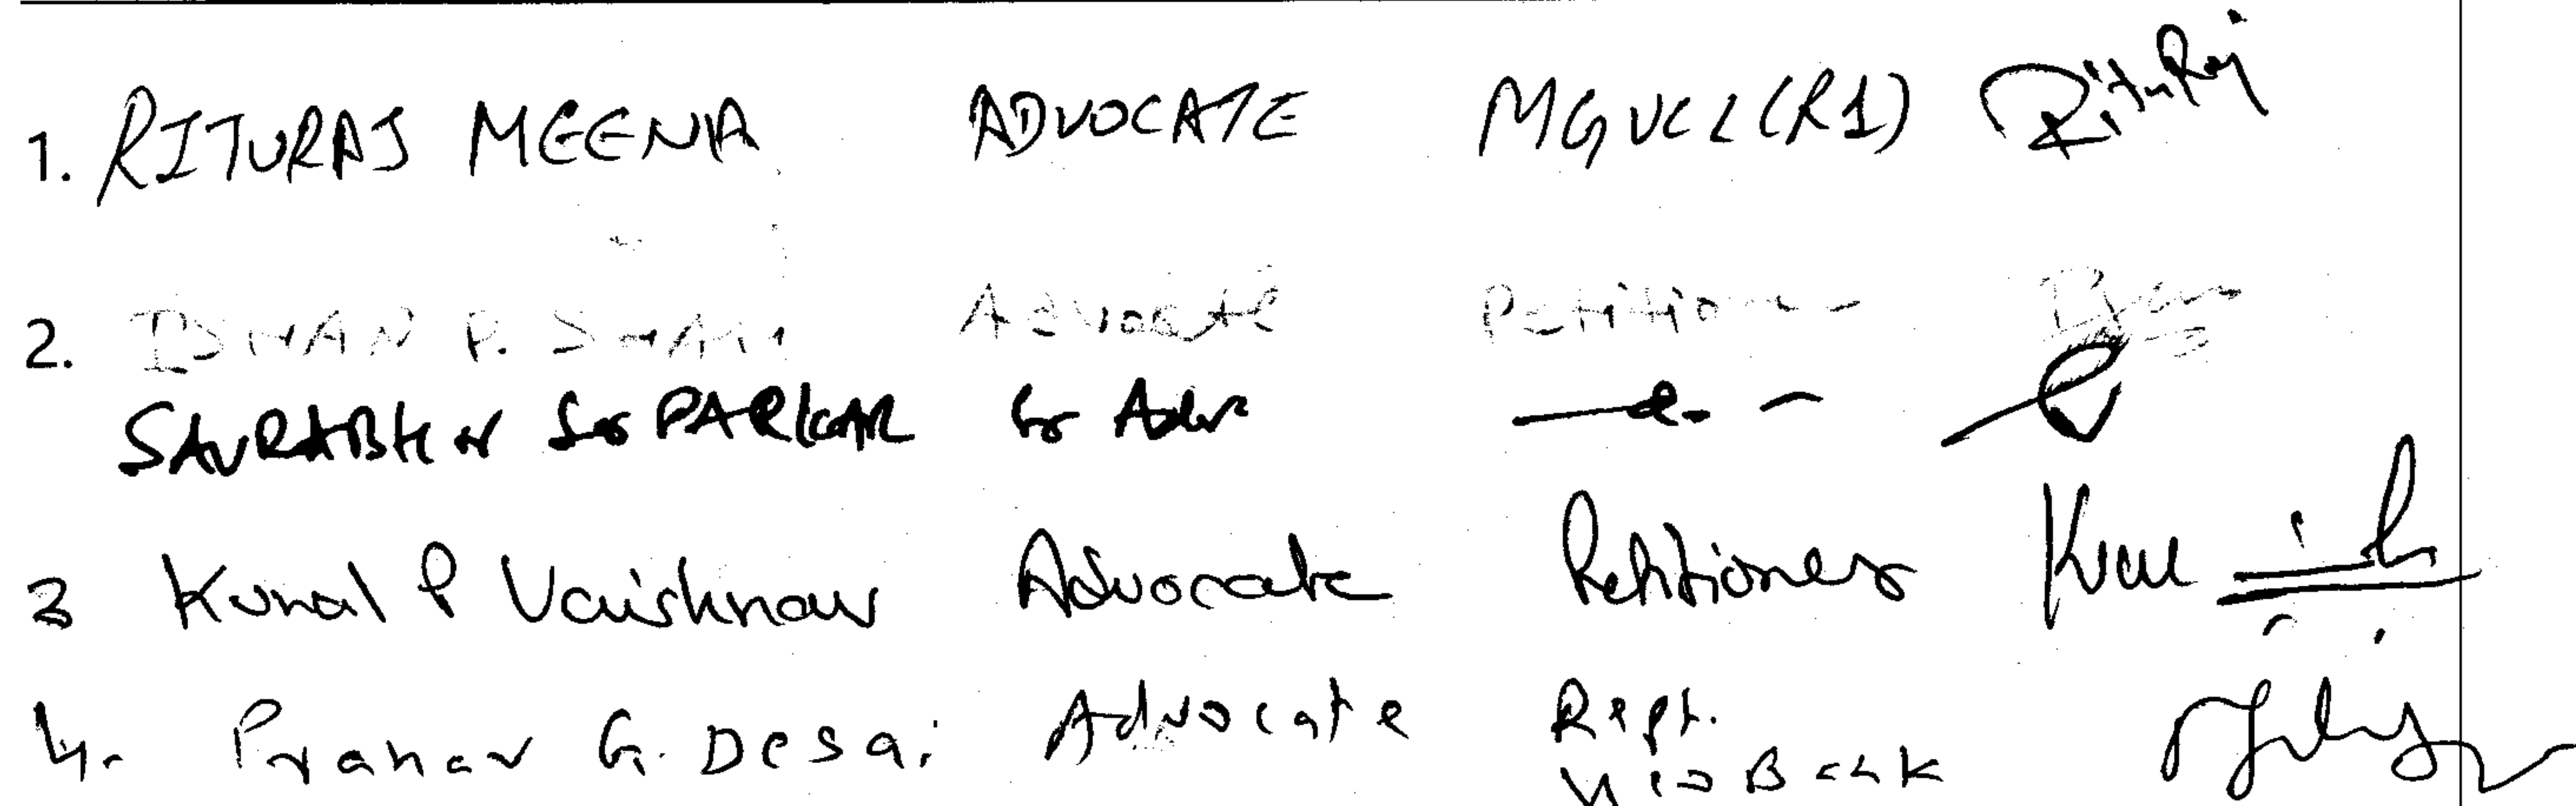 1. RITURAJ MEENA ADVOCATE MGVCL (R1) RituRaj
2. ISHAN P. SHAH Advocate Petitioner
SAURABH N SOPARKAR Sr Adv
3 Kunal P Vaishnav Advocate Petitioner
4. Pranav G. Desai Advocate Rept.
Uco Bank